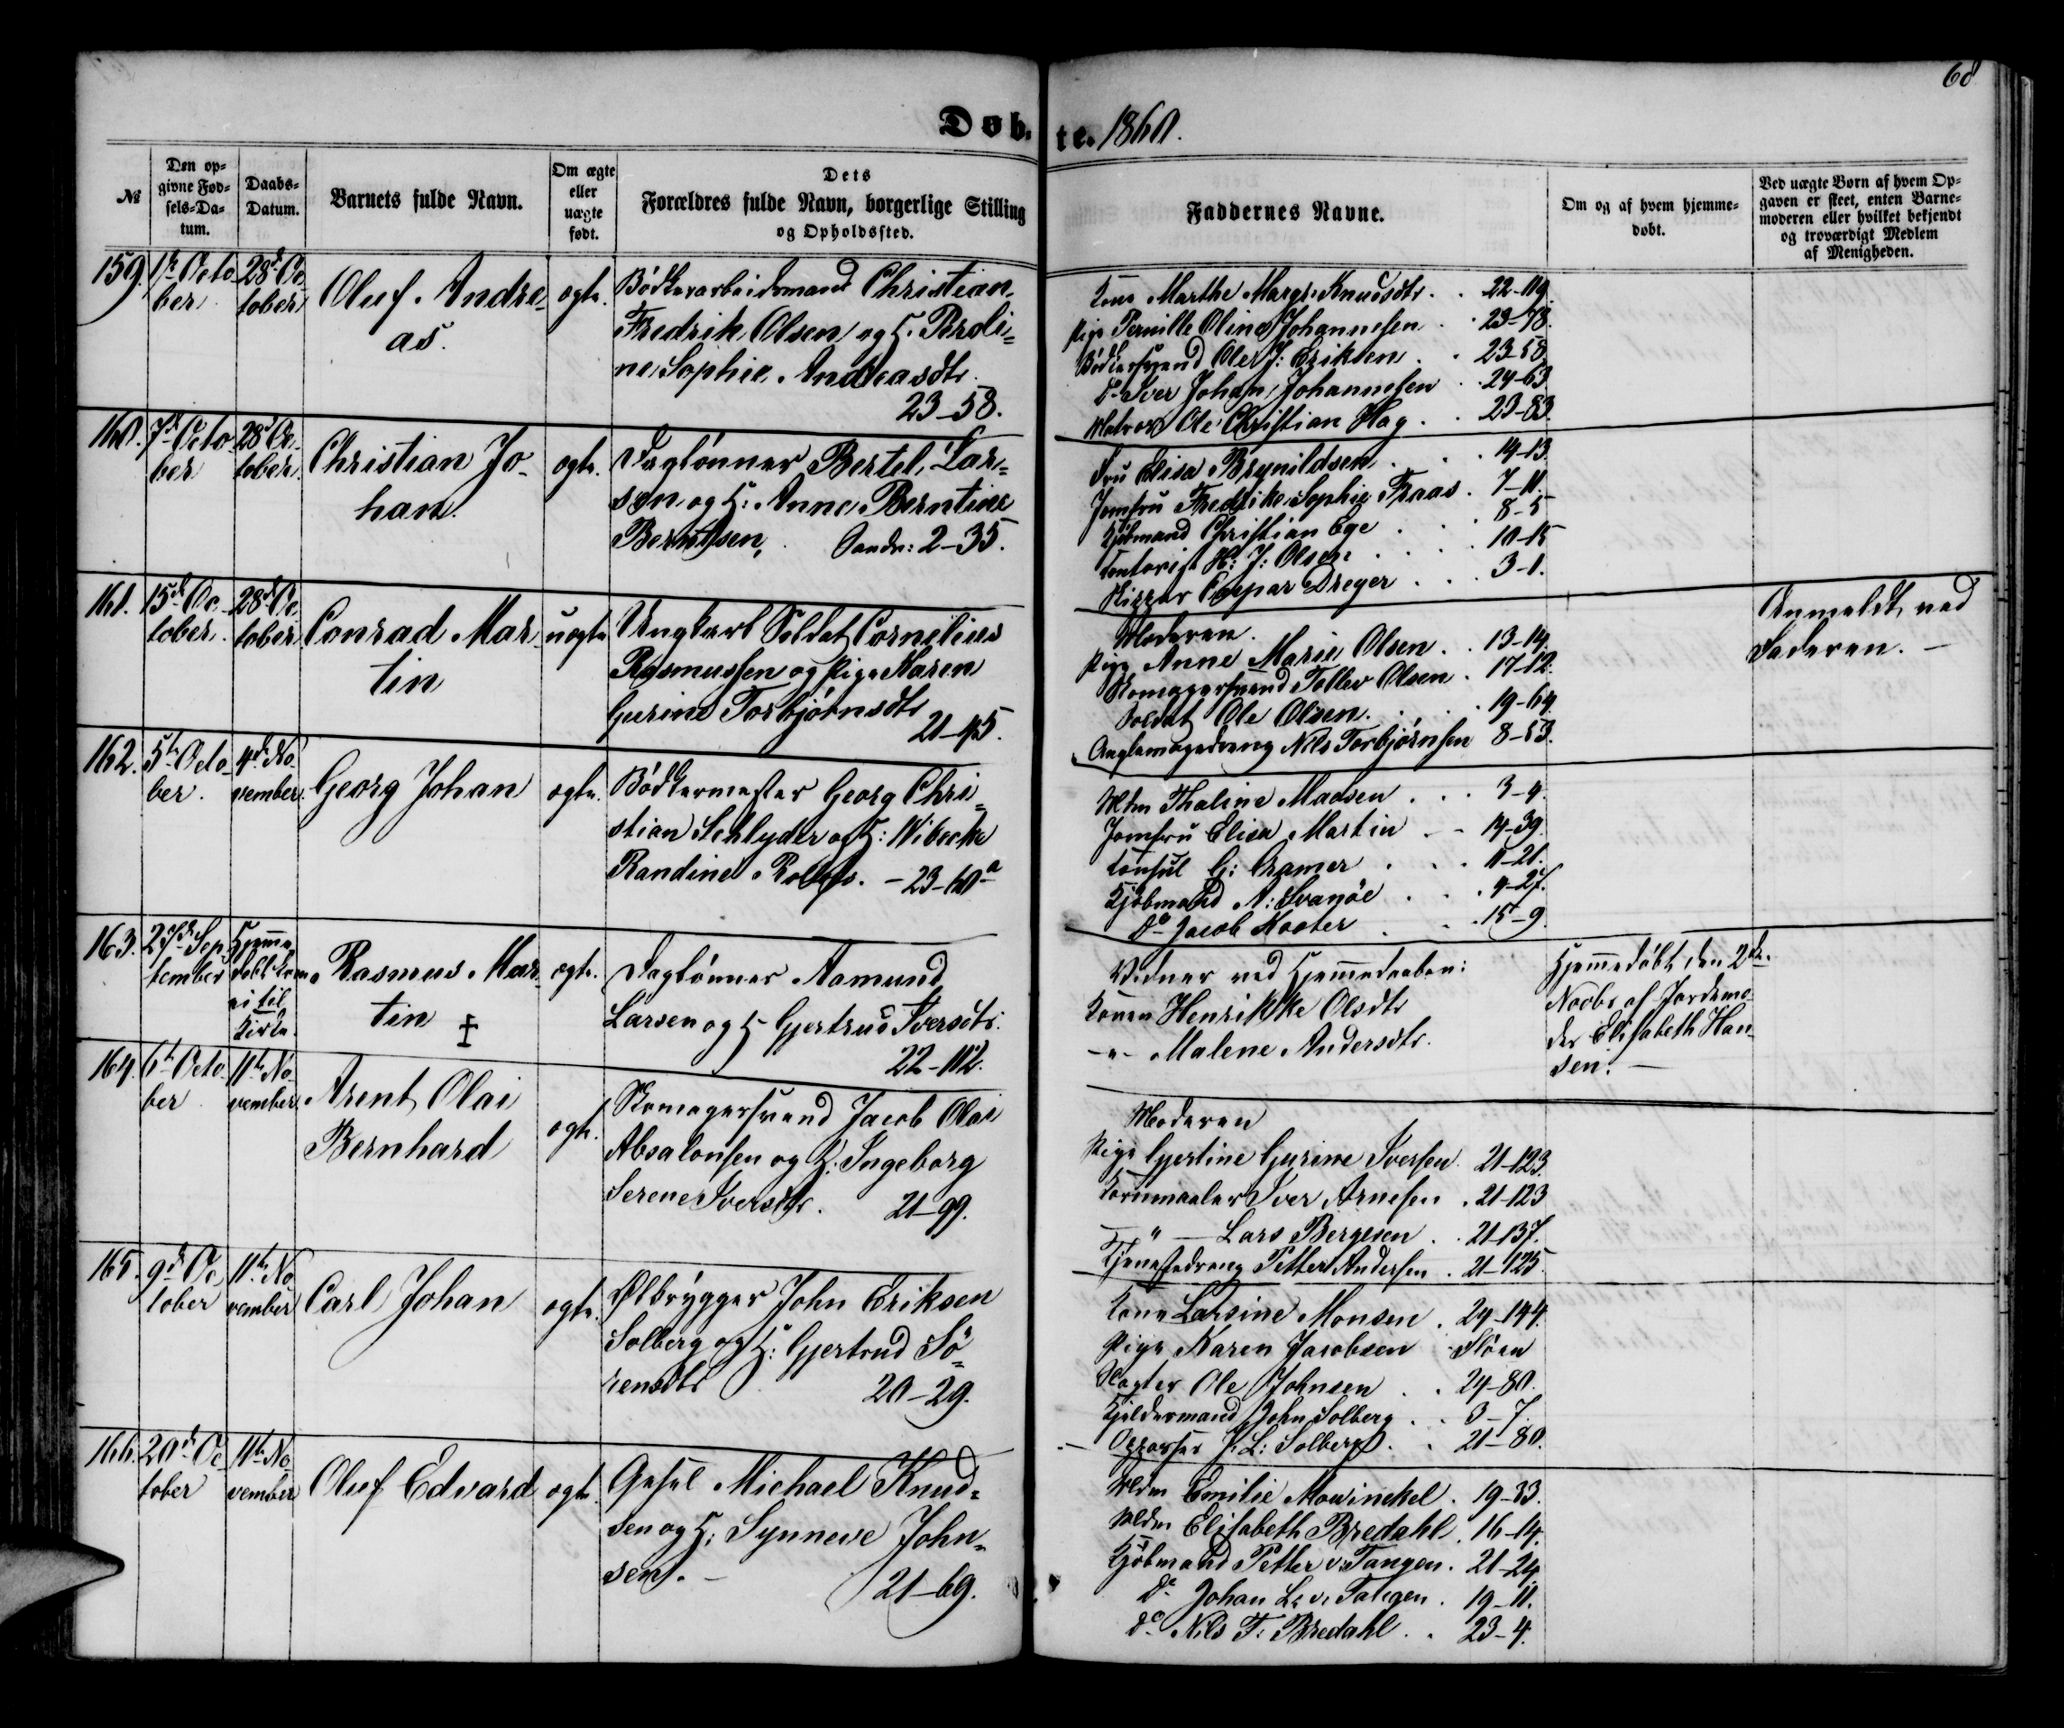 68
Døb-
te. 1860.
№
Den op-
givne Fød-
sels-Da-
tum.
Daabs-
Datum.
Barnets fulde Navn.
Om ægte
eller
uægte
født.
Dets
Forældres fulde Navn, borgerlige Stilling
og Opholdssted.
Faddernes Navne.
Om og af hvem hjemme-
døbt.
Ved uægte Børn af hvem Op-
gaven er skeet, enten Barne-
moderen eller hvilket bekjendt
og troværdigt Medlem
af Menigheden.
159. 1ste Octo-
ber
28de Oc-
tober
Oluf Andre-
as.
ægte.
Bödkerarbeidsmand Christian
Fredrik Olsen og H. Peroli-
ne Sophie Andreasdtr
23-58.
Kone Marthe Margr. Knudsdtr. 22-119.
Pige Pernille Olina Johannesen 23-78.
Bödkersvend Ole J: Eriksen 23-58.
Do Iver Johan Johannesen 24-63
Matros Ole Christian Hag 23-83.
160. 7de Octo-
ber
28de Oc-
tober
Christian Jo-
han.
ægte.
Daglönner Bertel Lar-
sen og H: Anne Berntine
Berntsen, Sandv: 2-35.
Fru Elisa Brynildsen 14-13.
Jomfru Fredrike Sophie Fraas 7-11.
Kjöbmand Christian Ege 8-5
Contorist H: J: Olsen 10-15
Skipper Caspar Dreyer 3-1.
161. 15de Oc-
tober
28de Oc-
tober
Conrad Mar-
tin
uægte
Ungkarl Soldat Cornelius
Rasmussen og Pige Karen
Gurine Torbjörnsdtr
21-45.
Moderen.
Pige Anne Marie Olsen 13-14.
Skomagersvend Tollev Olsen 17-12.
Soldat Ole Olsen 19-64.
Nils Torbjörnsen 8-53.
Anmeldt ved
Faderen. -
162. 5te Octo-
ber.
4de No-
vember.
Georg Johan
ægte.
Bödkermester Georg Chri-
stian Schlyder og H: Wibecke
Randine Rolfs. - 23-60a
Mdm Thaline Madsen 3-4.
Jomfru Elisa Martin 14-39.
Consul G: Cramer 11-21.
Kjöbmand A: Svanöe 4-27.
Do Jacob Kooter 15-9.
163. 27de Sep-
tember
Hjemme-
døbt kom
ei til
Kirke.
Rasmus Mar-
tin ‡
ægte.
Daglönner Aamund
Larsen og H. Gjertrud Iversdtr.
22-112.
Vidner ved Hjemmedaaben:
Konen Henrikke Olsdtr
-"- Malene Andersdtr.
Hjemmedöbt den 2de
Novbr af Jordemo-
der Elisabeth Han-
sen. -
164. 6te Octo-
ber
11te No-
vember.
Arent Olai
Bernhard
ægte.
Skomagersvend Jacob Olai
Absalonsen og H: Ingeborg
Serene Iversdtr. 21-99.
Moderen
Pige Gjertine Gurine Iversen. 21-123.
Kornmaaler Iver Arnesen 21-123
-"- Lars Bergesen 21-137.
Tjenestedreng Petter Andersen 21-125.
165. 9de Oc-
tober
11te No-
vember
Carl Johan
ægte.
Ølbrygger John Eriksen
Solberg og H: Gjertrud Sö-
rensdtr
20-29.
Kone Larsine Monsen 24-144.
Pige Karen Jacobsen Slöen
Slagter Ole Johnsen 24-80.
Kjeldermand John Solberg 3-7.
Oppasser J. L: Solberg 21-80.
166. 20de Oc-
tober
11te No-
vember
Oluf Edvard
ægte.
Gesel Michael Knud-
sen og H: Synneve John-
sen. -
21-69.
Mdm Emilie Mowinckel 19-33.
Mdm Elisabeth Bredahl 16-14.
Kjöbmand Petter v: Tangen 21-24.
Do Johan L. v. Tangen 19-11.
do Nils F: Bredahl 23-4.